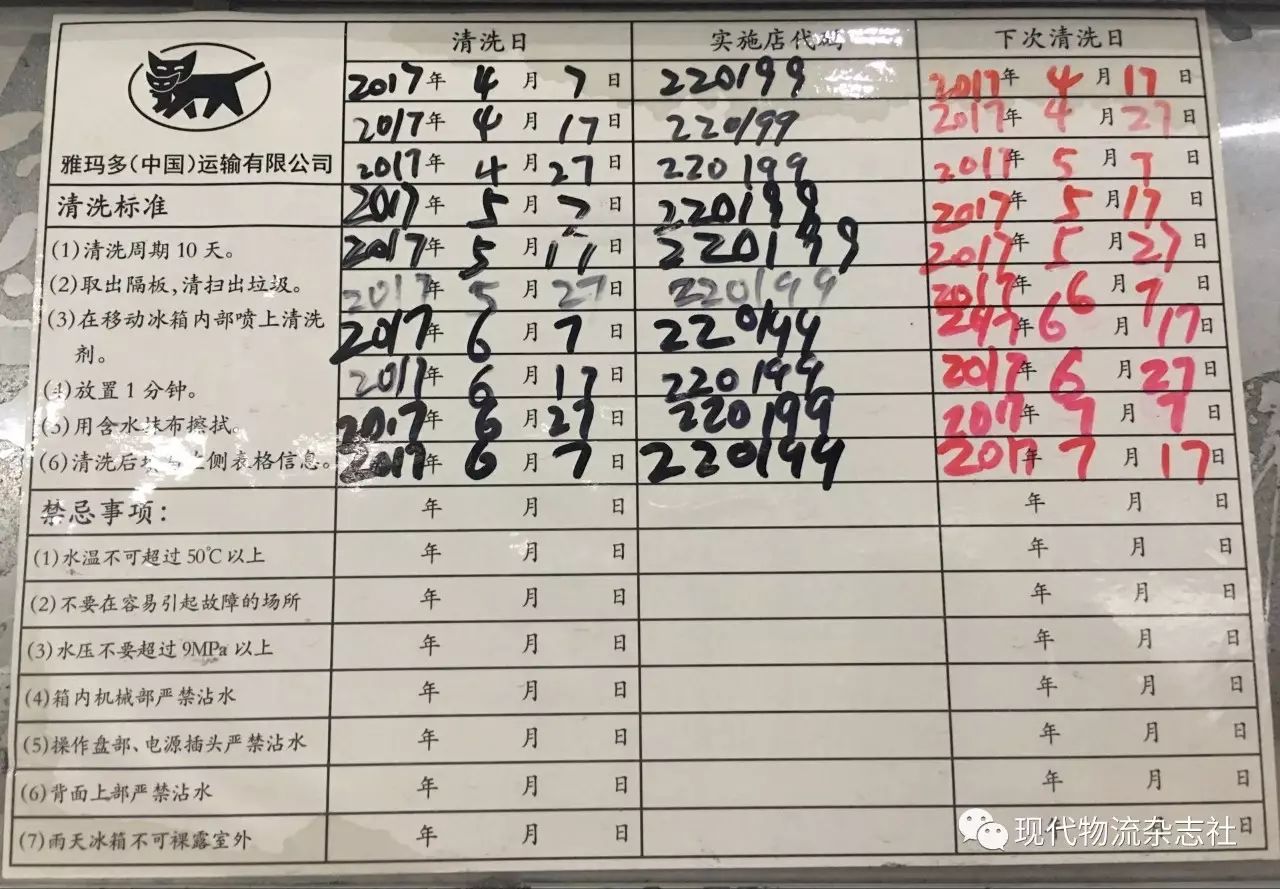 清洗日 实施店代码 下次清洗日
雅玛多(中国)运输有限公司
2017年 4月 7日 220199 2017年 4月 17日
2017年 4月 17日 220199 2017年 4月 27日
2017年 4月 27日 220199 2017年 5月 7日
清洗标准
2017年 5月 7日 220199 2017年 5月 17日
(1)清洗周期10天。
2017年 5月 17日 220199 2017年 5月 27日
(2)取出隔板,清扫出垃圾。
2017年 5月 27日 220199 2017年 6月 7日
(3)在移动冰箱内部喷上清洗
剂。
2017年 6月 7日 220199 2017年 6月 17日
(4)放置1分钟。
2017年 6月 17日 220199 2017年 6月 27日
(5)用含水抹布擦拭。
2017年 6月 27日 220199 2017年 7月 7日
(6)清洗后 侧表格信息。
2017年 6月 7日 220199 2017年 7月 17日
禁忌事项:
年 月 日 年 月 日
(1)水温不可超过50℃以上
年 月 日 年 月 日
(2)不要在容易引起故障的场所
年 月 日 年 月 日
(3)水压不要超过9MPa以上
年 月 日 年 月 日
(4)箱内机械部严禁沾水
年 月 日 年 月 日
(5)操作盘部、电源插头严禁沾水
年 月 日 年 月 日
(6)背面上部严禁沾水
年 月 日 年 月 日
(7)雨天冰箱不可裸露室外
年 月 日 日
现代物流杂志社